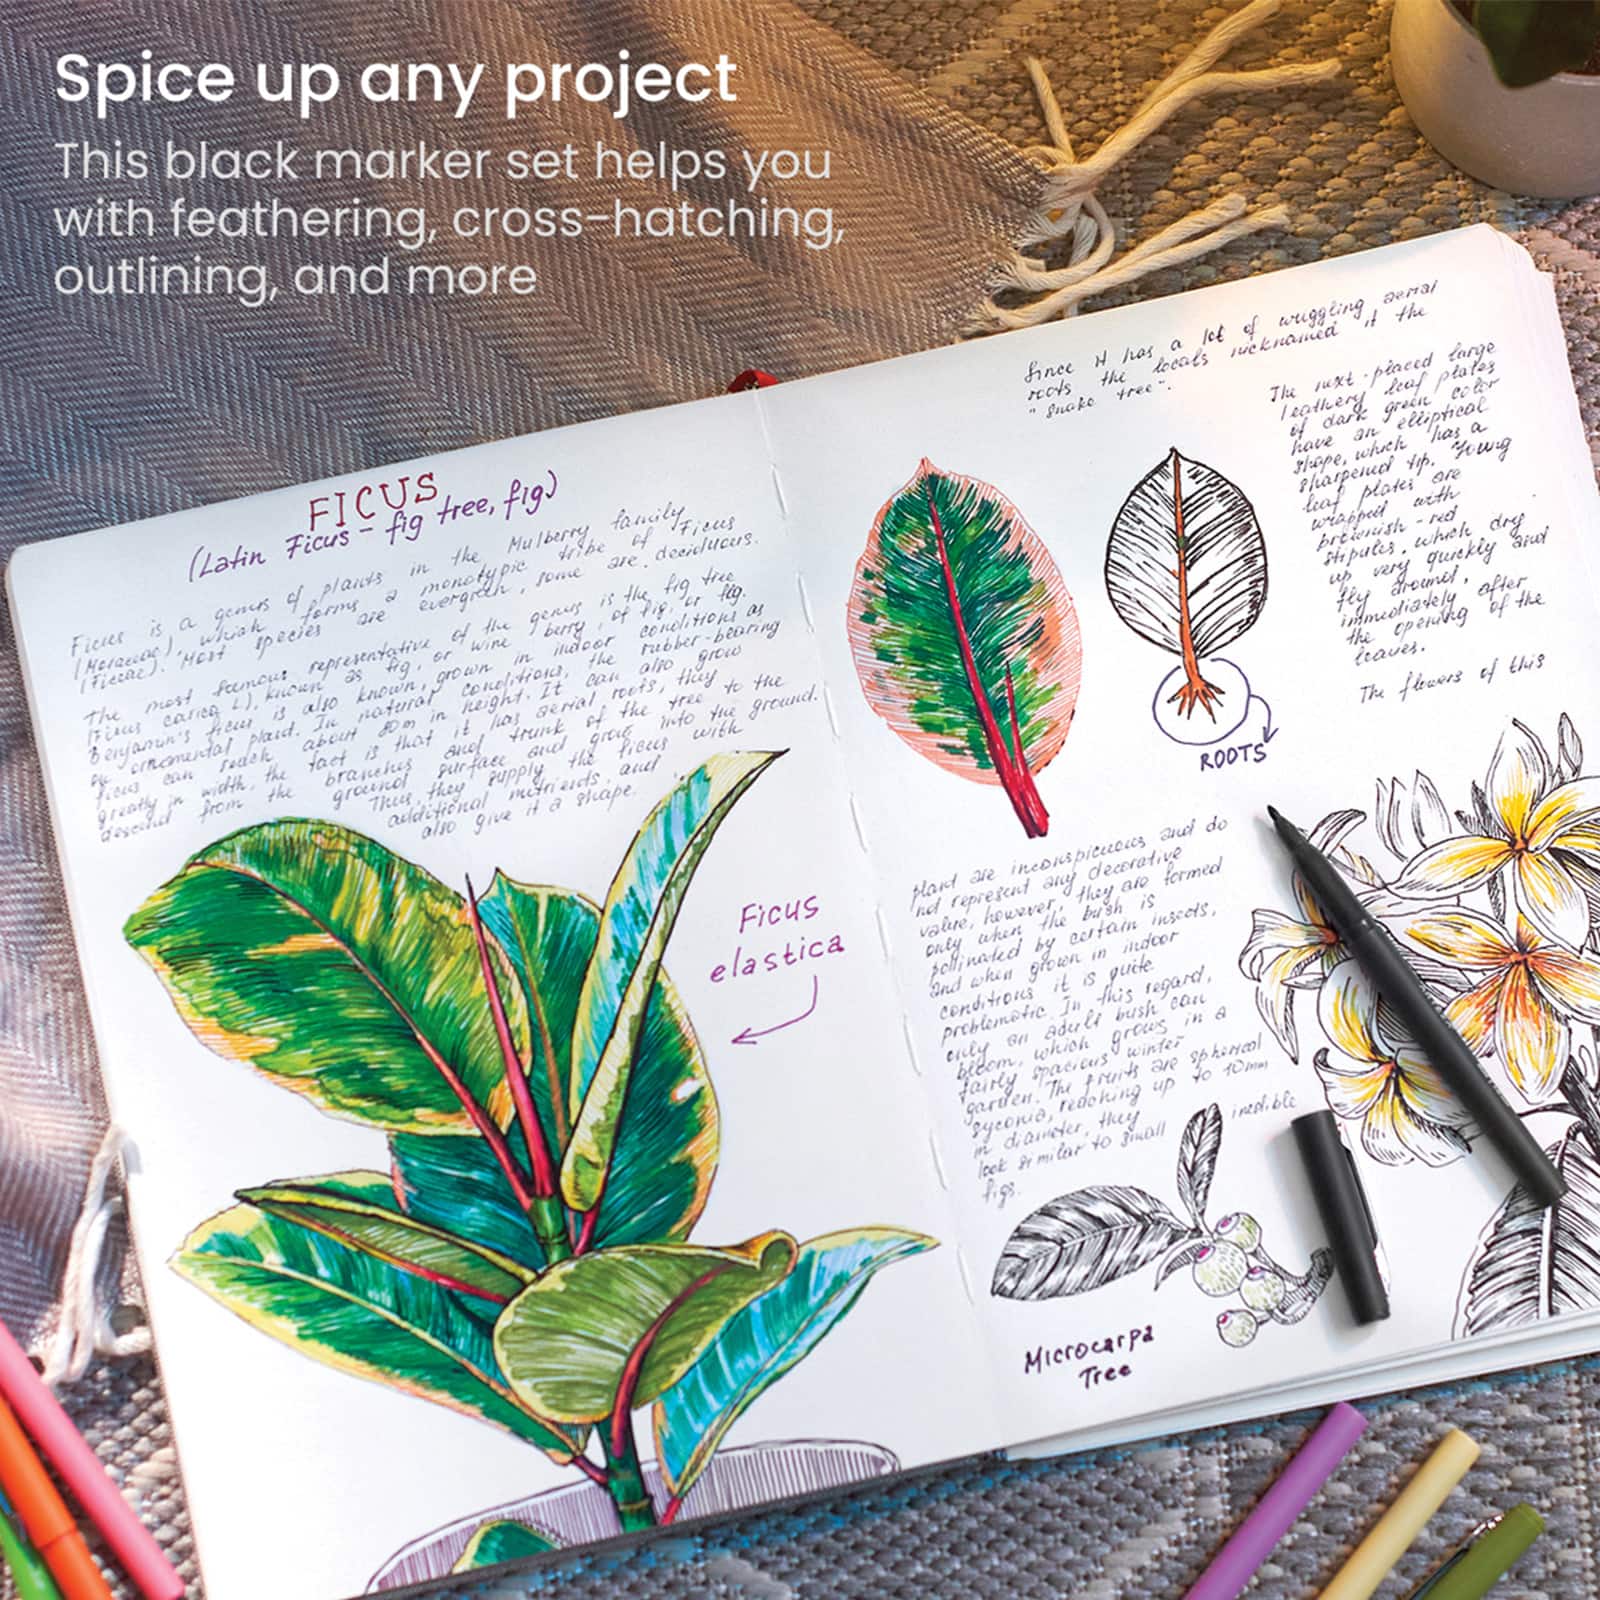 Spice up any project
This black marker set helps you
with feathering, cross-hatching,
outlining, and more
FICUS
(Latin Ficus – fig tree, fig)
Ficus is a genus of plants in the Mulberry family
(Moraceae), which forms a monotypic tribe of Ficus
(Ficeae). Most species are evergreen, some are deciduous.
The most famous representative of the genus is the fig tree
(Ficus carica L), known as fig, or wine berry, of fig, or fig.
Benjamin's ficus is also known, grown in indoor conditions as
an ornamental plant. In natural conditions, the rubber-bearing
ficus can reach about 30m in height. It can also grow
greatly in width, the fact is that it has aerial roots, they
descend from the branches and trunk of the tree to the
ground surface and grow into the ground.
Thus, they supply the ficus with
additional nutrients, and
also give it a shape.
Ficus
elastica
Since it has a lot of wriggling aerial
roots the locals nicknamed it the
"snake tree".
The next-placed large
leathery leaf plates
of dark green color
have an elliptical
shape, which has a
sharpened tip. Young
leaf plates are
wrapped with
brownish-red
stipules, which dry
up very quickly and
fly around,
immediately after
the opening of the
leaves.
The flowers of this
ROOTS
plant are inconspicuous and do
not represent any decorative
value, however, they are formed
only when the bush is
pollinated by certain insects,
and when grown in indoor
conditions it is quite
problematic. In this regard,
only an adult bush can
bloom, which grows in a
fairly spacious winter
garden. The fruits are spherical
syconia, reaching up to 10mm
in diameter, they inedible
look similar to small
figs.
Microcarpa
Tree